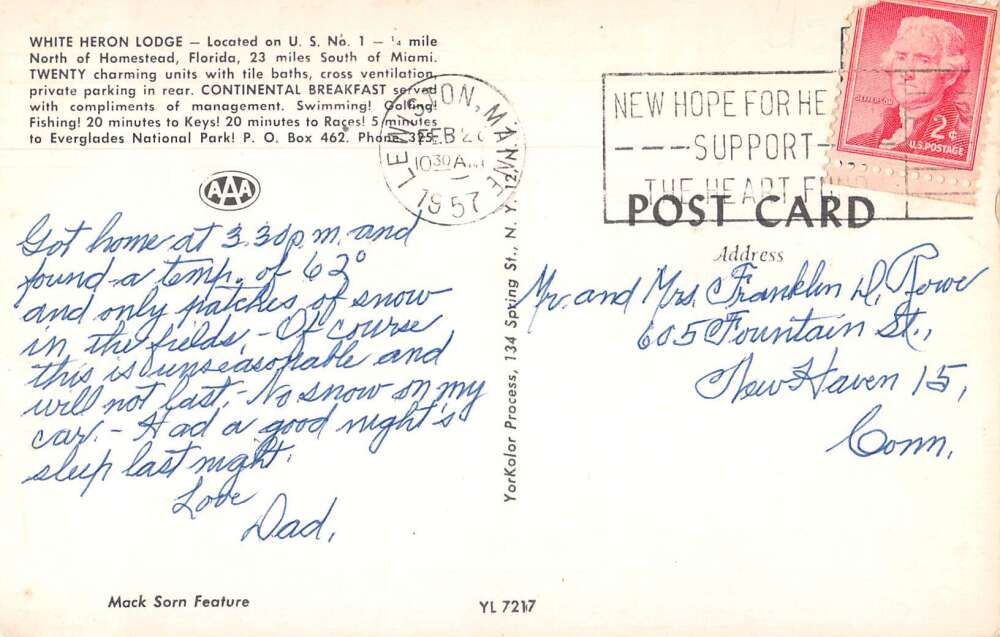 WHITE HERON LODGE — Located on U. S. No. 1 — ¼ mile
North of Homestead, Florida, 23 miles South of Miami.
TWENTY charming units with tile baths, cross ventilation,
private parking in rear. CONTINENTAL BREAKFAST served
with compliments of management. Swimming! Golfing!
Fishing! 20 minutes to Keys! 20 minutes to Races! 5 minutes
to Everglades National Park! P. O. Box 462. Phone 325.
AAA
LEWISTON, MAINE
FEB 2
10 30 AM
1957
NEW HOPE FOR HE
---SUPPORT-
THE HEART FUND
JEFFERSON
2¢
U.S. POSTAGE
POST CARD
Address
Got home at 3.30 p.m. and
found a temp. of 62°
and only patches of snow
in the fields, - Of course
this is unseasonable and
will not last. - No snow on my
car. - Had a good night's
sleep last night.
Love
Dad.
YorKolor Process, 134 Spring St., N. Y. 12, N.Y.
Mr. and Mrs. Franklin D. Rowe
605 Fountain St.,
New Haven 15,
Conn.
Mack Sorn Feature
YL 7217